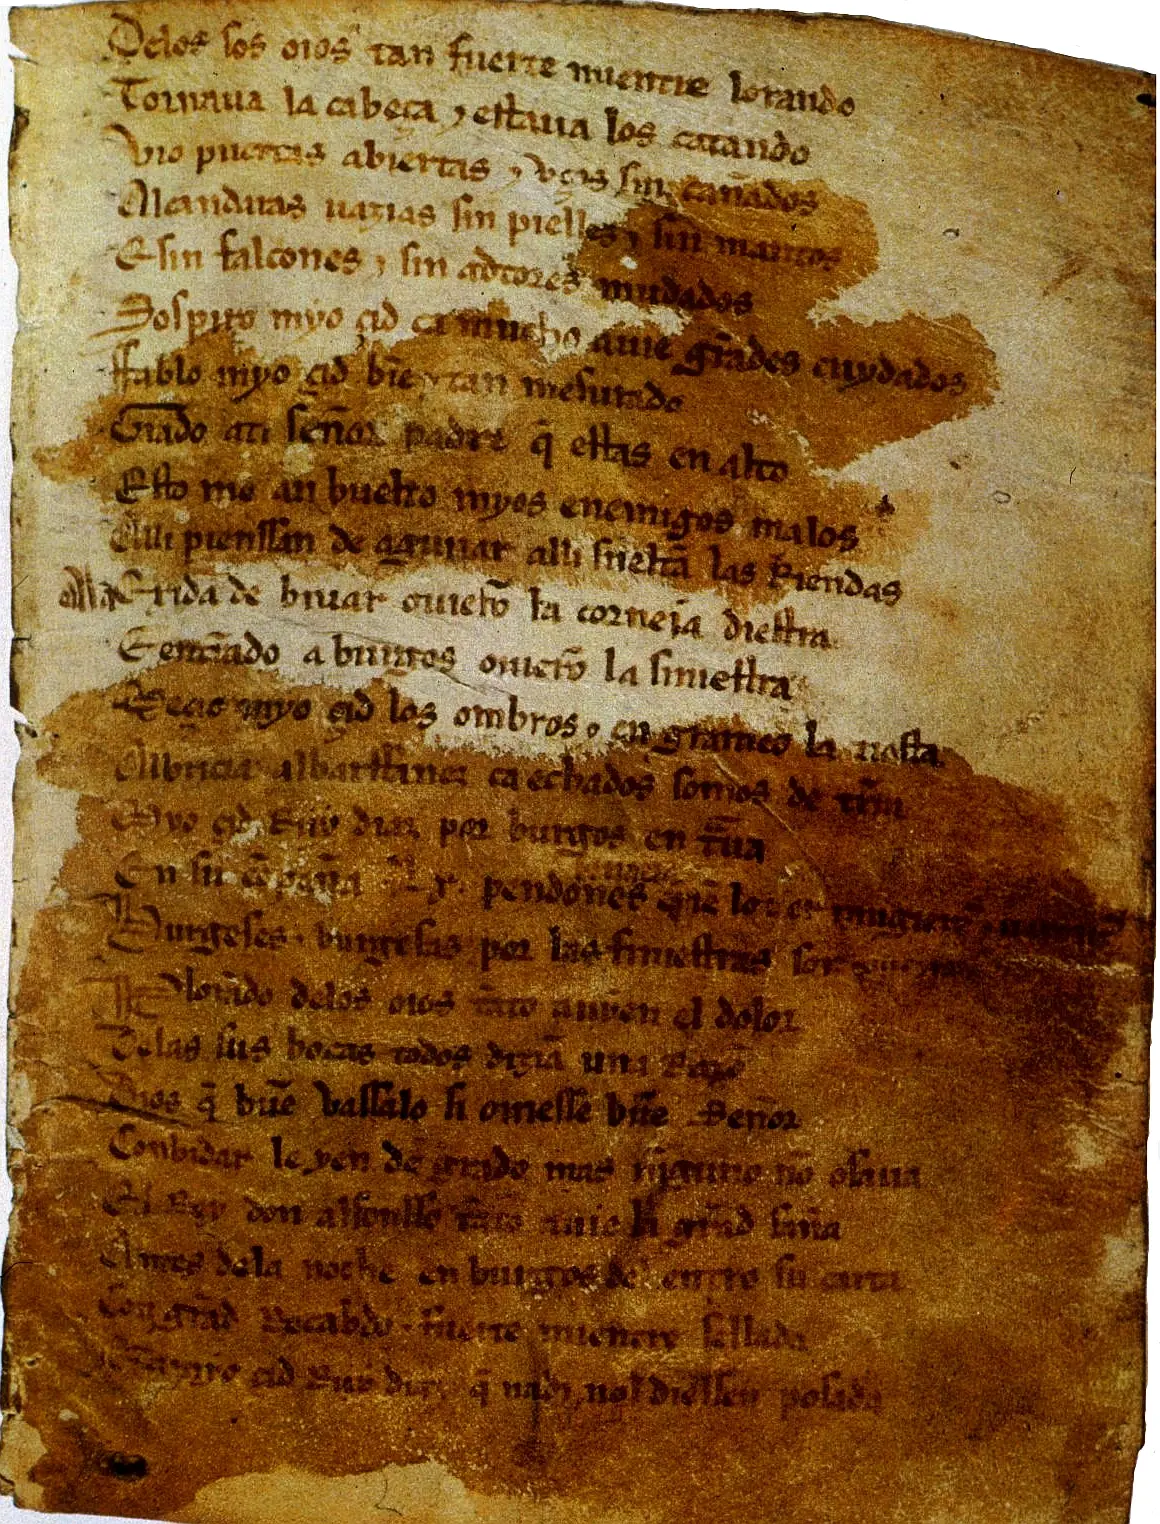 Delos sos oios tan fuerte mientre lorando
Tornaua la cabeça ⁊ estaua los catando
Vio puertas abiertas ⁊ vços sin cañados
Alcandaras uazias sin pielles ⁊ sin mantos
E sin falcones ⁊ sin adtores mudados
Sospiro myo çid ca mucho auie gr̃ades cuydados
Ffablo myo çid biẽ ⁊ tan mesurado
Grado ati señor padre q̃ estas en alto
Esto me an buelto myos enemigos malos
Alli pienssan de aguiiar alli sueltã las Riendas
Ala Exida de biuar ouierõ la corneia diestra
E entrãdo a burgos ouierõ la siniestra
Meçio myo çid los ombros ⁊ en grameo la tiesta
Albricia albarffanez ca echados somos de tr̃ra
Myo çid Ruy diaz por burgos en trãua
En su cõpaña .Lx. pendones
Burgeses ⁊ burgesas por las finiestras son
Plorãdo delos oios tãto auyen el dolor
Delas sus bocas todos dizia͂ una Razõ
Dios q̃ buẽ vassalo si ouiesse buẽ Señor
Conbidar le yen de grado mas nĩguno nõ osaua
El Rey don alfonsso tãto auie la grãd saña
Antes dela noche en burgos del entro su carta
Con grãd Recabdo ⁊ fuerte mientre sellada
çid Ruy diaz q̃ nadi nol diessen posada